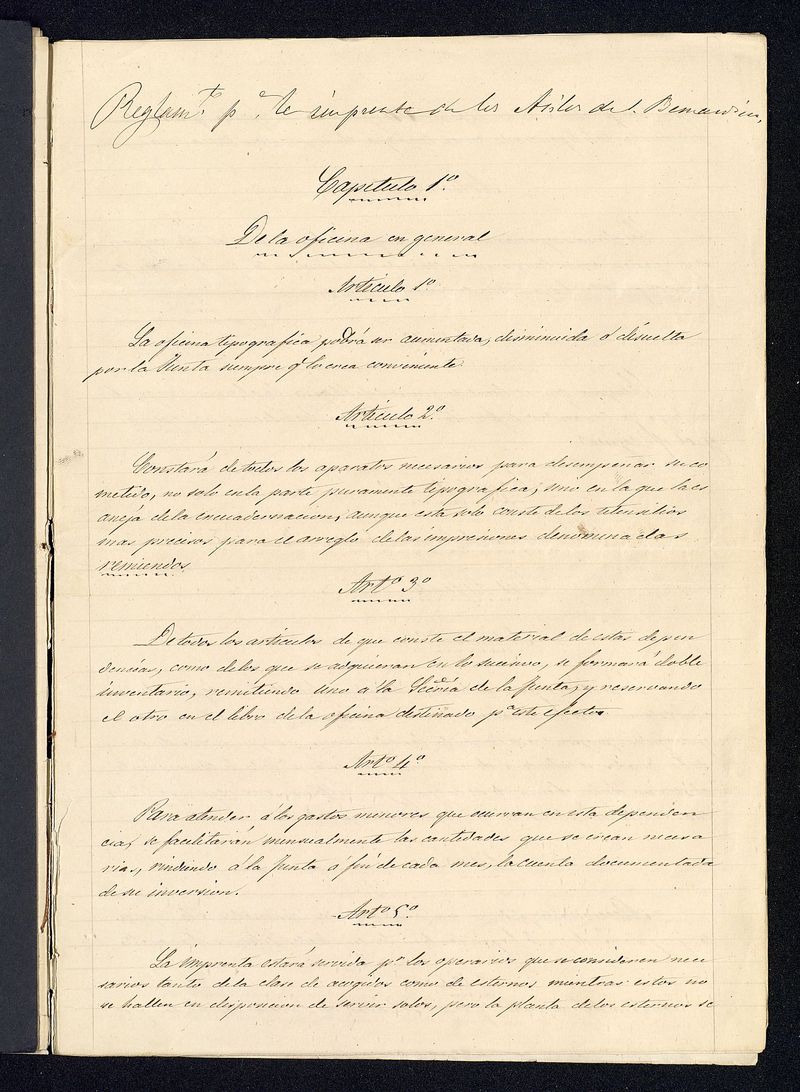 Reglam.to p.a la imprenta de los Asilos de S. Bernardino,
Capitulo 1.o
De la oficina en general
Articulo 1.o
La oficina tipografica podrá ser aumentada, disminuida ó disuelta
por la Junta siempre q.e lo crea conveniente.
Articulo 2.o
Constará de todos los aparatos necesarios para desempeñar su co
metido, no solo en la parte puramente tipografica, sino en la que la es
aneja de la encuadernacion, aunque esta solo conste de los utensilios
mas precisos para el arreglo de las impresiones denominadas
remiendos
Art.o 3.o
De todos los articulos de que conste el material de estas depen
dencias, como de los que se adquieran en lo sucesivo, se formará doble
inventario, remitiendo uno á la Secría de la Junta, y reservando
el otro en el libro de la oficina destinado p.a este efecto.
Art.o 4.o
Para atender á los gastos menores que ocurran en esta dependen
cia, se facilitarán mensualmente las cantidades que se crean necesa
rias, rindiendo á la Junta á fin de cada mes, la cuenta documentada
de su inversion.
Art.o 5.o
La imprenta estará servida p.r los operarios que se consideren nece
sarios tanto de la clase de acogidos como de esternos mientras estos no
se hallen en disposicion de servir solos, pero la planta de los esternos se